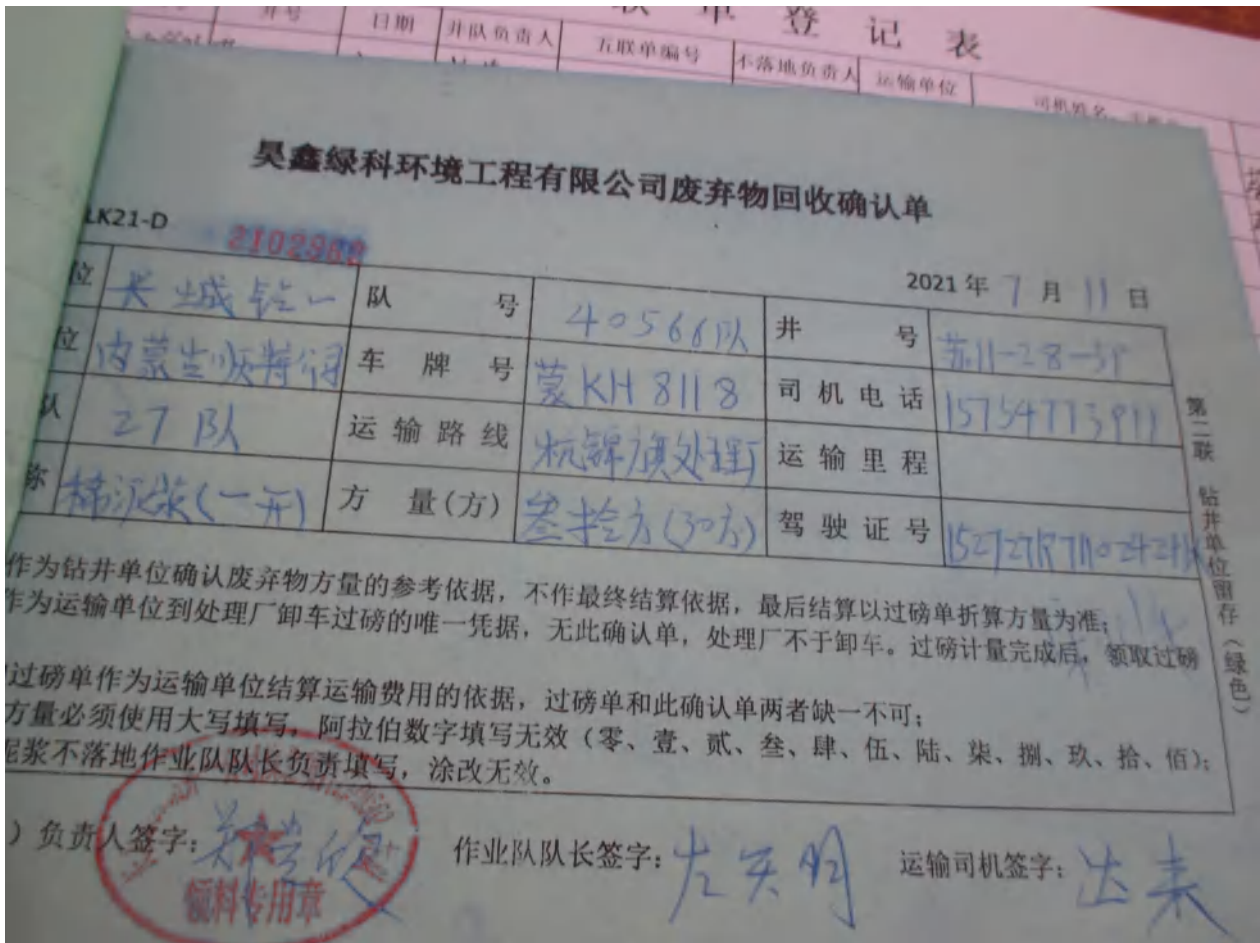 联 单 登 记 表
井号 日期 井队负责人 五联单编号 不落地负责人 运输单位 司机姓名
昊鑫绿科环境工程有限公司废弃物回收确认单
LK21-D 2102988
2021 年 7 月 11 日
位 长城钻一 队 号 40566队 井 号 苏11-28-
位 内蒙 车 牌 号 蒙KH 8118 司 机 电 话 15754773911
队 27队 运 输 路 线 杭锦旗处理厂 运 输 里 程
称 稀泥浆(一开) 方 量(方) 叁拾方(30方) 驾 驶 证 号
作为钻井单位确认废弃物方量的参考依据，不作最终结算依据，最后结算以过磅单折算方量为准；
作为运输单位到处理厂卸车过磅的唯一凭据，无此确认单，处理厂不于卸车。过磅计量完成后，领取过磅
过磅单作为运输单位结算运输费用的依据，过磅单和此确认单两者缺一不可；
方量必须使用大写填写，阿拉伯数字填写无效（零、壹、贰、叁、肆、伍、陆、柒、捌、玖、拾、佰）；
泥浆不落地作业队队长负责填写，涂改无效。
）负责人签字： 作业队队长签字： 运输司机签字：
领料专用章
第二联 钻井单位留存（绿色）